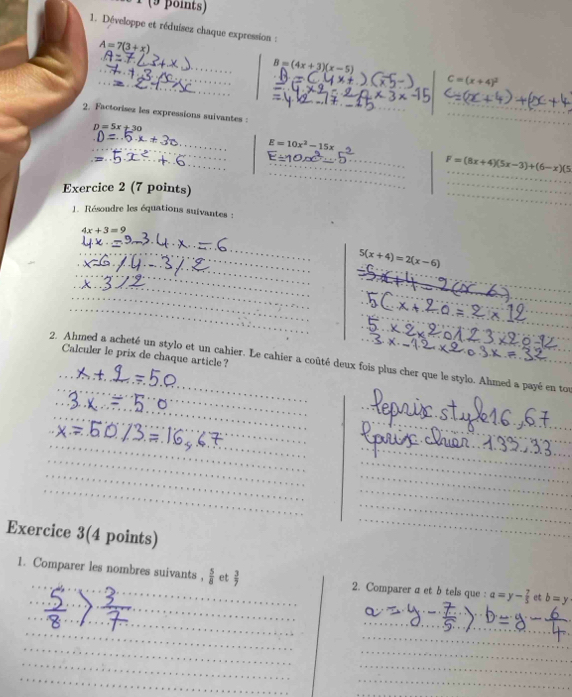 1. Développe et réduisez chaque expression :
A = 7(3 + x)
A = 7(3+x)
B = (4x + 3)(x − 5)
C = (x + 4)²
C = (x+4) + (x+4
2. Factorisez les expressions suivantes :
D = 5x + 30
D = 5x + 30
= 5x² + 6
E = 10x² − 15x
F = (8x + 4)(5x − 3) + (6 − x)(5
Exercice 2 (7 points)
1. Résoudre les équations suivantes :
4x + 3 = 9
4x = 9-3 4x = 6
x=6/4 - 3/2
x 3/2
5(x + 4) = 2(x − 6)
5(x + 20 = 2x 12
3x -12 x 20 3x = 32
2. Ahmed a acheté un stylo et un cahier. Le cahier a coûté deux fois plus cher que le stylo. Ahmed a payé en tou
Calculer le prix de chaque article ?
x + 2 = 50
3x = 50
x = 50/3 = 16,67
le prix style 16,67
133,33
Exercice 3(4 points)
1. Comparer les nombres suivants , 5/8 et 3/7
5/8 > 3/7
2. Comparer a et b tels que : a = y − 7/5 et b = y
a = y - 7/5 > b = y - 6/4